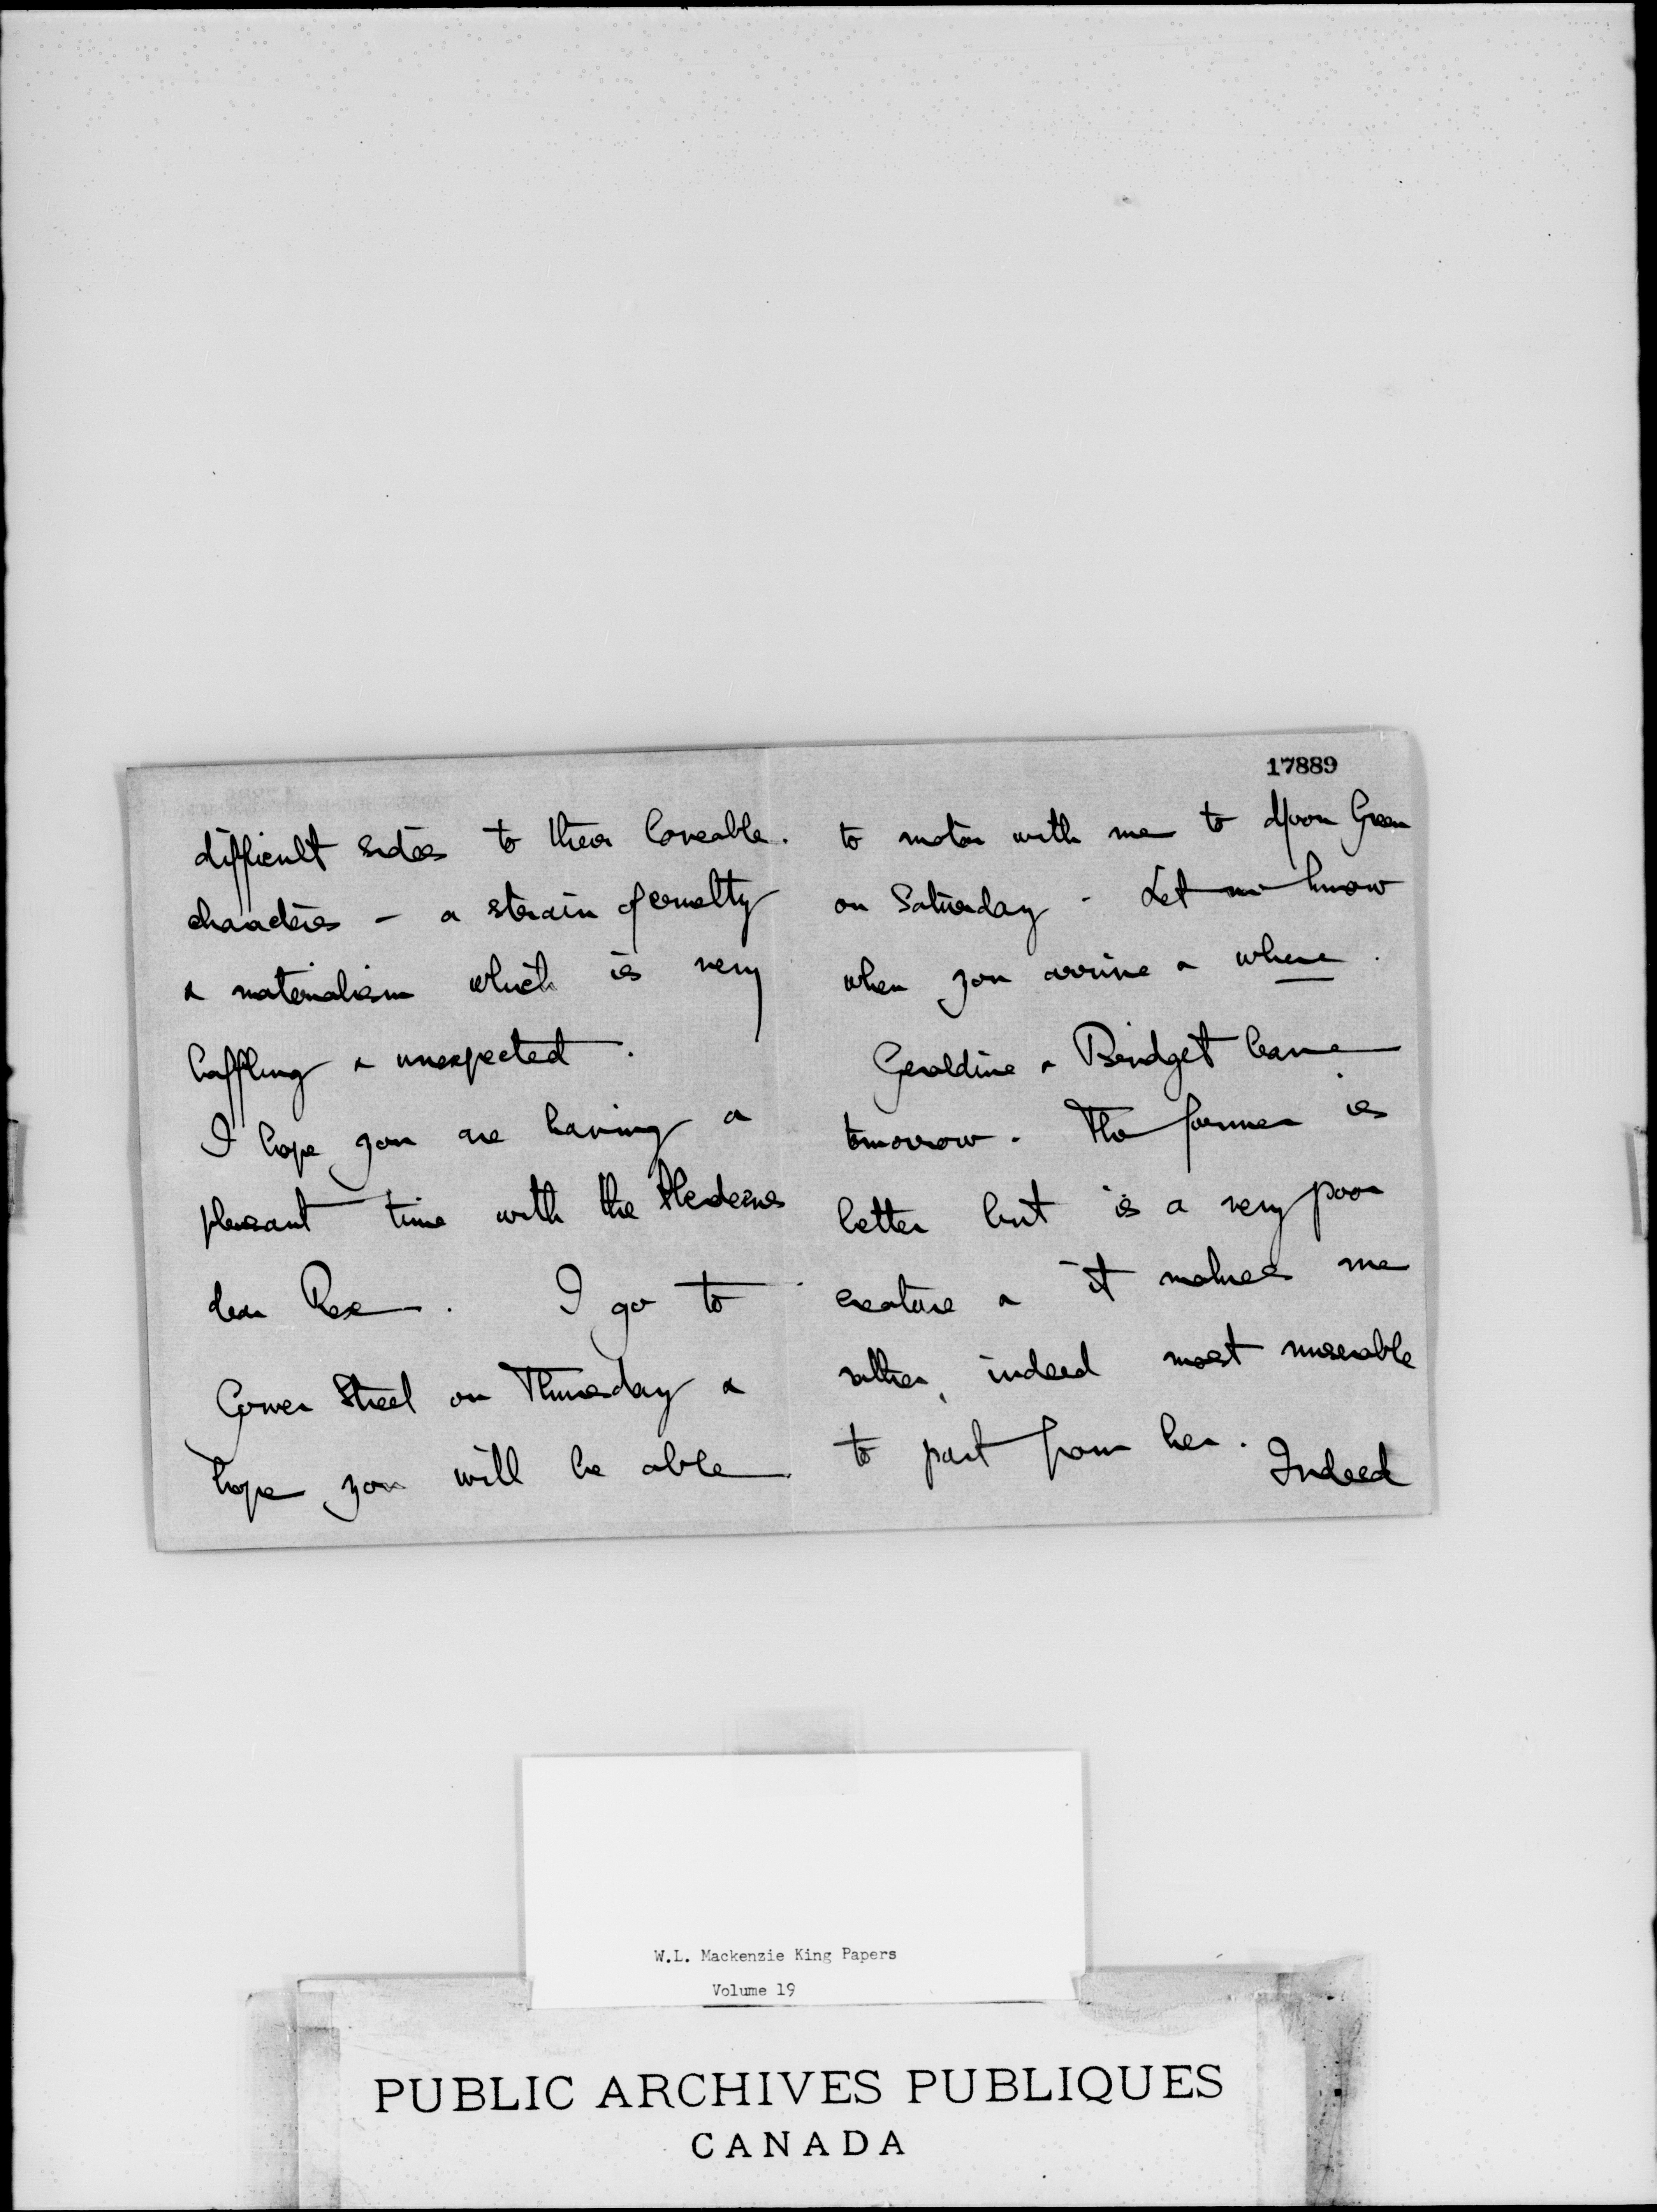 17889
difficult sides to their loveable
characters - a strain of cruelty
& materialism which is very
baffling & unexpected.
I hope you are having a
pleasant time with the
dear Rex. I go to
Gower Street on Thursday &
hope you will be able
to motor with me to Green
on Saturday. Let me know
when you arrive & where.
Geraldine & Bridget leave
tomorrow. The former is
better but is a very poor
creature & it makes me
rather, indeed most miserable
to part from her. Indeed
W.L. Mackenzie King Papers
Volume 19
PUBLIC ARCHIVES PUBLIQUES
CANADA